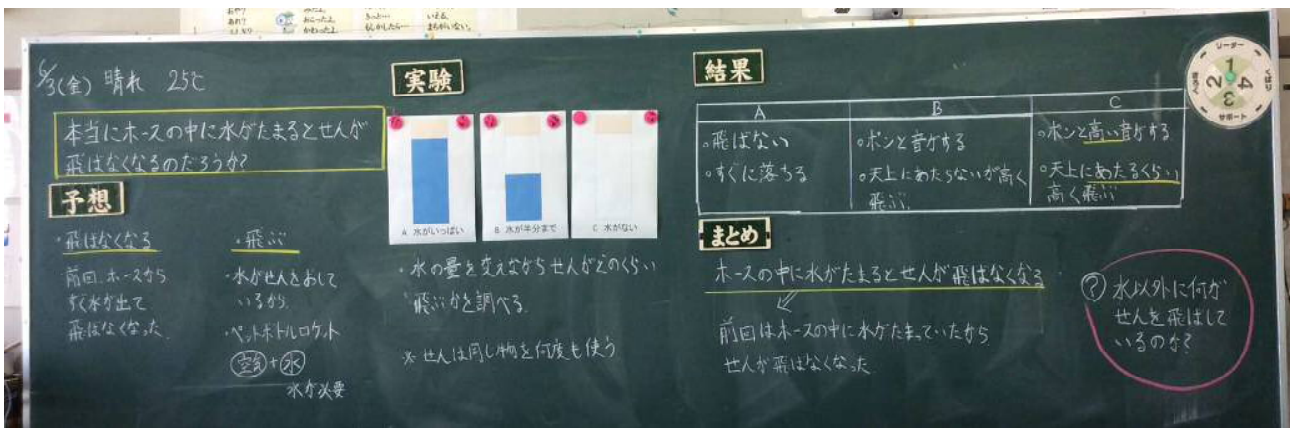 6/3(金) 晴れ 25℃
本当にホースの中に水がたまるとせんが
飛ばなくなるのだろうか?
予想
・飛ばなくなる
前回、ホースから
水が出て
飛ばなくなった。
・飛ぶ
・水がせんをおして
いるから。
・ペットボトルロケット
空気+水
水が必要
実験
A 水がいっぱい
B 水が半分まで
C 水がない
・水の量を変えながらせんがどのくらい
飛ぶかを調べる。
※せんは同じ物を何度も使う
結果
A
B
C
○飛ばない
○すぐに落ちる
○ポンと音がする
○天上にあたらないが高く
飛ぶ.
○ポンと高い音がする
○天上にあたるくらい
高く飛ぶ
まとめ
ホースの中に水がたまるとせんが飛ばなくなる
前回はホースの中に水がたまっていたから
せんが飛ばなくなった
? 水以外に何が
せんを飛ばして
いるのか?
リーダー
くばり
サポート
きろく
1
2
3
4